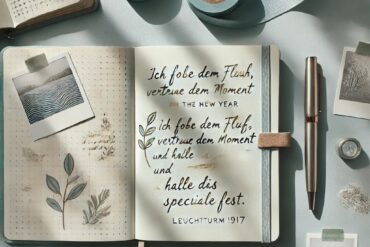 Ich fobe dem Flouh,
vertraue dem Moment
THE NEW YEAR
ich fobe dem Fluß,
vertraue dem Moment
und halle
und
halle dis
speciale fest.
LEUCHTTURM 1917